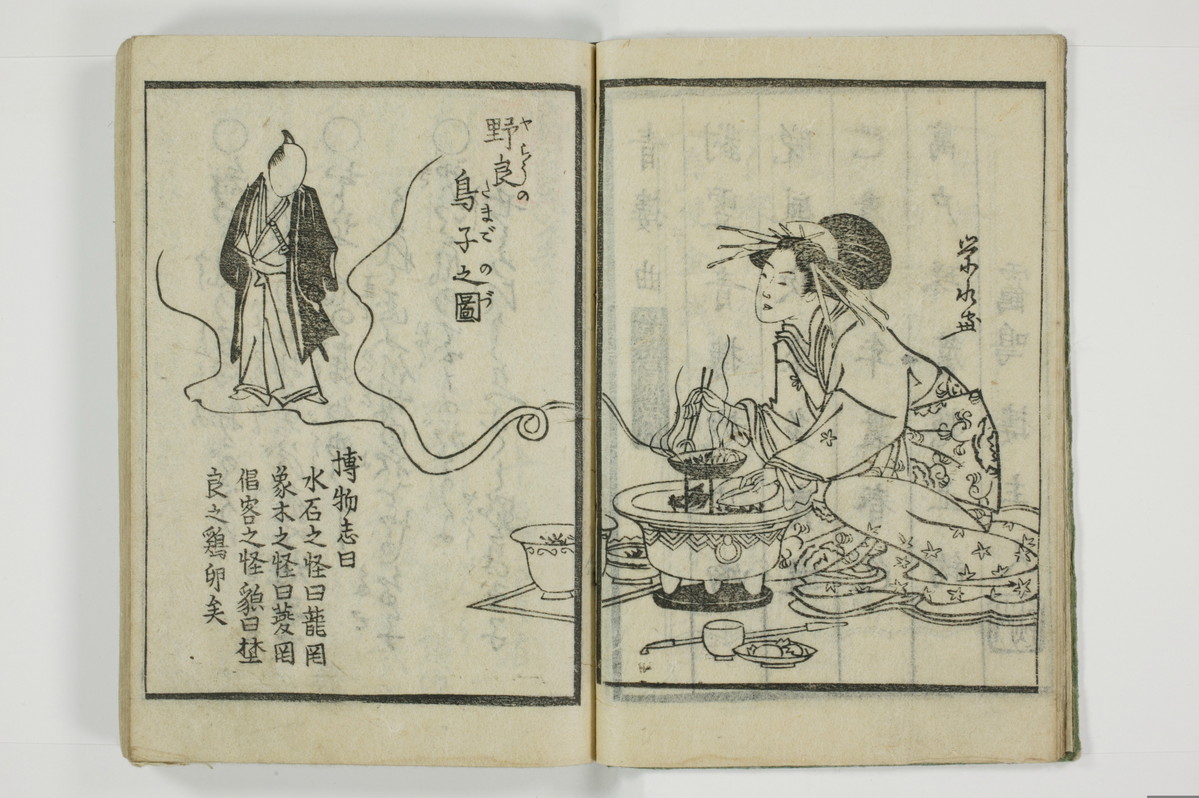 栄水画
野良の
鳥子之圖
たまごのづ
博物志曰
水石之怪曰龍罔
象木之怪曰夔罔
倡客之怪貌曰埜
良之鶏卵矣